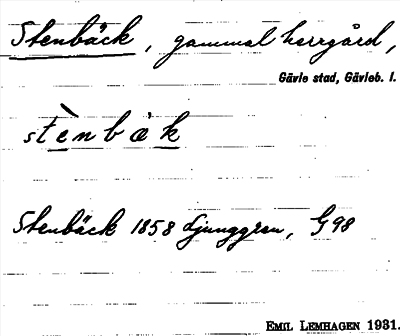 Stenbäck, gammal herrgård,
Gävle stad, Gävleb. l.
stènbäk
Stenbäck 1858 Ljunggren, G98
EMIL LEMHAGEN 1931.